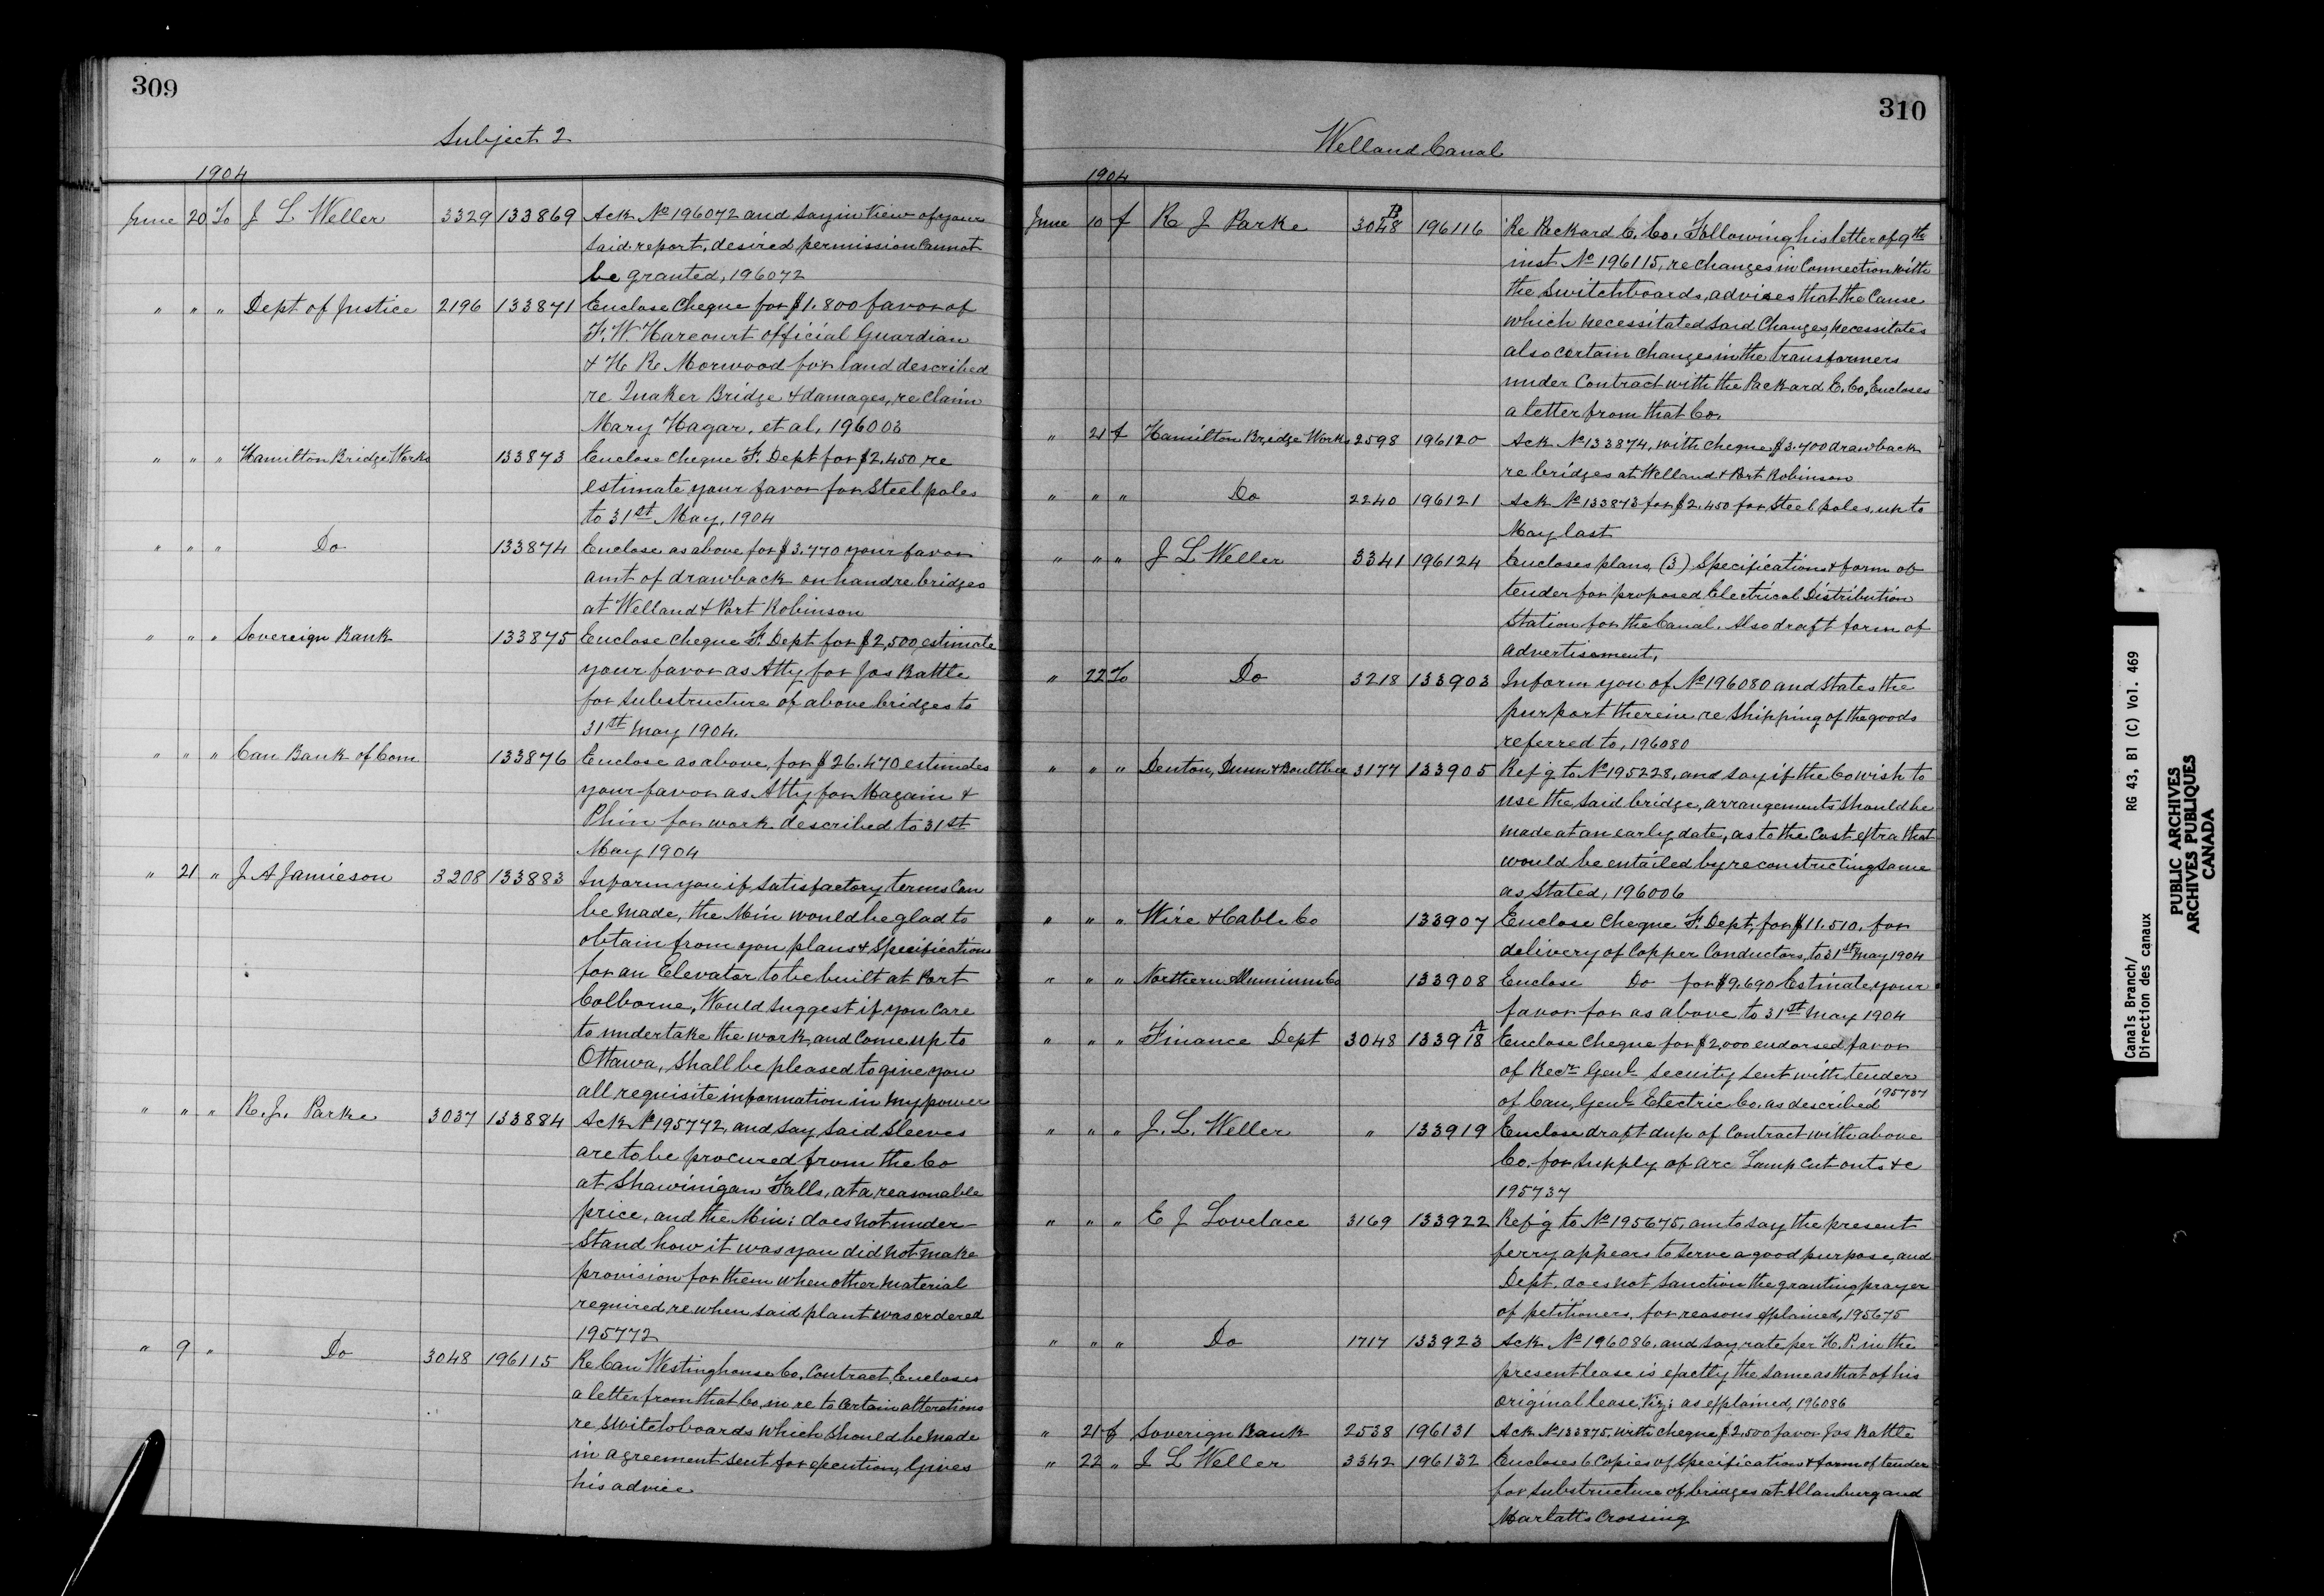 309
Subject 2
1904
June 20 To J L Weller 3329 133869 Ack No 196072 and say in view of your
said report, desired permission cannot
be granted, 196072
" " " Dept of Justice 2196 133871 Enclose Cheque for $1.800 favor of
F. W. Harcourt official Guardian
& H Re Morwood for land described
re Quaker Bridge & damages, re claim
Mary Hagar, et al. 196003
" " " Hamilton Bridge Works 133873 Enclose cheque F. Dept for $2.450 re
estimate your favor for Steel poles
to 31st May, 1904
" " " Do 133874 Enclose as above for $3.770 your favor
amt of drawback on hand re bridges
at Welland & Port Robinson
" " " Sovereign Bank 133875 Enclose cheque F. Dept for $2,500 estimate
your favor as Atty for Jos Battle
for substructure of above bridges to
31st May 1904.
" " " Can Bank of Com 133876 Enclose as above, for $26.470 estimates
your favor as Atty for Magain &
Phin for work described to 31st
May 1904
" 21 " J A Jamieson 3208 133883 Inform you if satisfactory terms Can
be made, the Min would be glad to
obtain from you plans & Specifications
for an Elevator to be built at Port
Colborne, Would suggest if you care
to undertake the work, and Come up to
Ottawa, shall be pleased to give you
all requisite information in my power
" " " R. J. Parke 3037 133884 Ack No 195772, and say said Sleeves
are to be procured from the Co
at Shawinigan Falls, at a reasonable
price, and the Min: does not under-
stand how it was you did not make
provision for them when other material
required re when said plant was ordered
195772
" 9 " Do 3048 196115 Re Can Westinghouse Co. Contract, Encloses
a letter from that Co, in re to Certain alterations
re Switchboards which should be made
in agreement sent for execution, Gives
his advice
310
Welland Canal
1904
June 10 f R J Parke 3048 B 196116 Re Packard E. Co. Following his letter of 9th
inst No 196115, re changes in Connection with
the Switchboards, advises that the Cause
which necessitated said Changes, necessitates
also certain changes in the transformers
under Contract with the Packard E. Co, Encloses
a letter from that Co.
" 21 f Hamilton Bridge Works 2598 196120 Ack No 133874, with cheque $3.700 drawback
re bridges at Welland & Port Robinson
" " " Do 2240 196121 Ack No 133873 for $2.450 for Steel poles, up to
May last
" " " J L Weller 3341 196124 Encloses plans, (3) Specifications & form of
tender for proposed Electrical Distribution
Station for the Canal. Also draft form of
advertisement,
" 22 To Do 3218 133903 Inform you of No 196080 and states the
purport therein re Shipping of the goods
referred to, 196080
" " " Denton, Dunn & Boultbee 3177 133905 Ref'g to No 195228, and say if the Co wish to
use the said bridge, arrangements should be
made at an early date, as to the Cost extra that
would be entailed by re constructing same
as stated, 196006
" " " Wire & Cable Co 133907 Enclose Cheque F. Dept, for $11.510. for
delivery of Copper Conductors, to 31st May 1904
" " " Northern Aluminium Co 133908 Enclose Do for $9.690 Estimate your
favor for as above to 31st May 1904
" " " Finance Dept 3048 133918 A Enclose Cheque for $2,000 endorsed favor
of Recr Genl security sent with tender
of Can, Genl Electric Co. as described 195737
" " " J. L. Weller " 133919 Enclose draft dup of Contract with above
Co. for supply of arc Lamp cut outs &c
195737
" " " E J Lovelace 3169 133922 Ref'g to No 195675, am to say the present
ferry appears to serve a good purpose, and
Dept. does not sanction the granting prayer
of petitioners, for reasons explained, 195675
" " " Do 1717 133923 Ack No 196086, and say rate per H. P. in the
present lease is exactly the same as that of his
original lease, Viz; as explained, 196086
" 21 f Soverign Bank 2538 196131 Ack No 133875, with cheque $2,500 favor Jos Battle
" 22 " J L Weller 3342 196132 Encloses 6 Copies of Specification & form of tender
for substructure of bridges at Allanburg and
Marlatts Crossing
Canals Branch/ RG 43, B1 (C) Vol. 469
Direction des canaux
PUBLIC ARCHIVES
ARCHIVES PUBLIQUES
CANADA